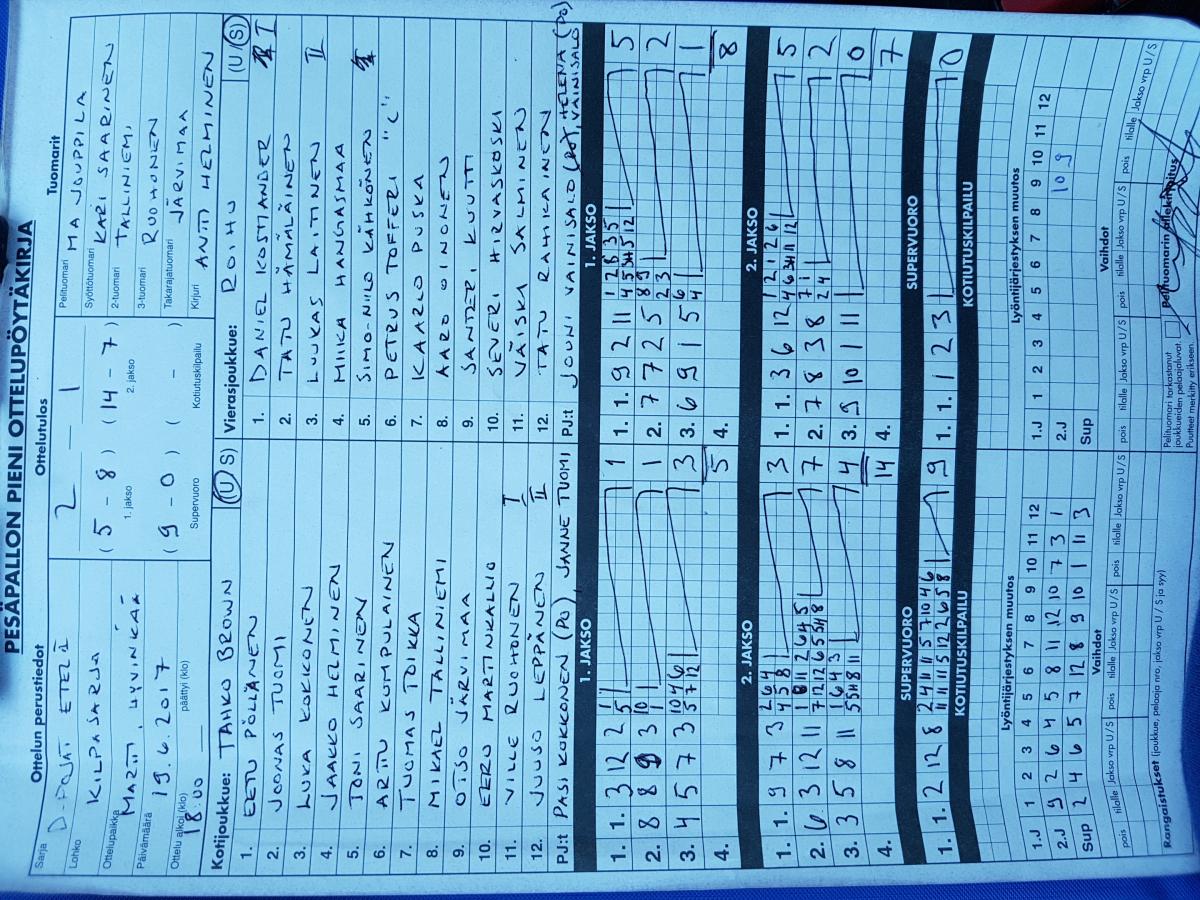 PESÄPALLON PIENI OTTELUPÖYTÄKIRJA
Ottelun perustiedot
Sarja D-POJAT ETELÄ
Lohko KILPASARJA
Ottelupaikka MARTTI, HYVINKÄÄ
Päivämäärä 19.6.2017
Ottelu alkoi (klo) 18:00 päättyi (klo)
Ottelutulos
2 — 1
(5 - 8) (14 - 7)
1. jakso 2. jakso
(9 - 0) ( - )
Supervuoro Kotiutuskilpailu
Tuomarit
Pelituomari MA JOUPPILA
Syöttötuomari KARI SAARINEN
2-tuomari TALLINIEMI
3-tuomari RUOHONEN
Takarajatuomari JÄRVIMAA
Kirjuri ANTTI HELMINEN
Kotijoukkue: TAHKO BROWN (U S)
1. EETU PÖLJÄNEN
2. JOONAS TUOMI
3. LUKA KOKKONEN
4. JAAKKO HELMINEN
5. TONI SAARINEN
6. ARTTU KUMPULAINEN
7. TUOMAS TOIKKA
8. MIKAEL TALLINIEMI
9. OTSO JÄRVIMAA
10. EERO MARTINKALLIO
11. VILLE RUOHONEN I
12. JUUSO LEPPÄNEN II
PJ:t PASI KOKKONEN (PO) JANNE TUOMI
Vierasjoukkue: ROIHU (U S)
1. DANIEL KOSTIANDER I
2. TATU HÄMÄLÄINEN
3. LUKAS LAITINEN II
4. MIIKA HANGASMAA
5. SIMO-NIILO KÄHKÖNEN
6. PETRUS TOFFERI "C"
7. KAARLO PUSKA
8. AARO OINONEN
9. SANTERI KUUTTI
10. SEVERI HIRVASKOSKI
11. VÄISKA SALMINEN
12. TATU RAHIKAINEN
PJ:t JOUNI VAINISALO HELENA VAINISALO (PO)
1. JAKSO
1. 1. 3 12 2 1
2. 8 8 3 1
3. 4 5 7 3 3
4. 5
1. JAKSO
1. 1. 9 2 11 5
2. 7 7 2 5 2
3. 6 9 1 5 1
4. 8
2. JAKSO
1. 1. 9 7 3 3
2. 6 3 12 11 7
3. 3 5 8 11 4
4. 14
2. JAKSO
1. 1. 3 6 12 5
2. 7 8 3 8 2
3. 9 10 1 11 0
4. 7
SUPERVUORO
1. 1. 2 12 8 9
SUPERVUORO
1. 1. 1 2 3 0
KOTIUTUSKILPAILU
KOTIUTUSKILPAILU
Lyöntijärjestyksen muutos
1 2 3 4 5 6 7 8 9 10 11 12
1.J
2.J 9 2 6 4 5 8 11 12 10 7 3 1
Sup 2 4 6 5 7 12 8 9 10 1 11 3
Lyöntijärjestyksen muutos
1 2 3 4 5 6 7 8 9 10 11 12
1.J
2.J 10 9
Sup
Vaihdot
pois tilalle Jakso vrp U/S pois tilalle Jakso vrp U/S pois tilalle Jakso vrp U/S
Vaihdot
pois tilalle Jakso vrp U/S pois tilalle Jakso vrp U/S pois tilalle Jakso vrp U/S
Rangaistukset (joukkue, pelaaja nro, jakso vrp U/S ja syy)
Pelituomari tarkastanut joukkueiden pelaajaluvat.
Puutteet merkitty erikseen.
Pelituomarin allekirjoitus